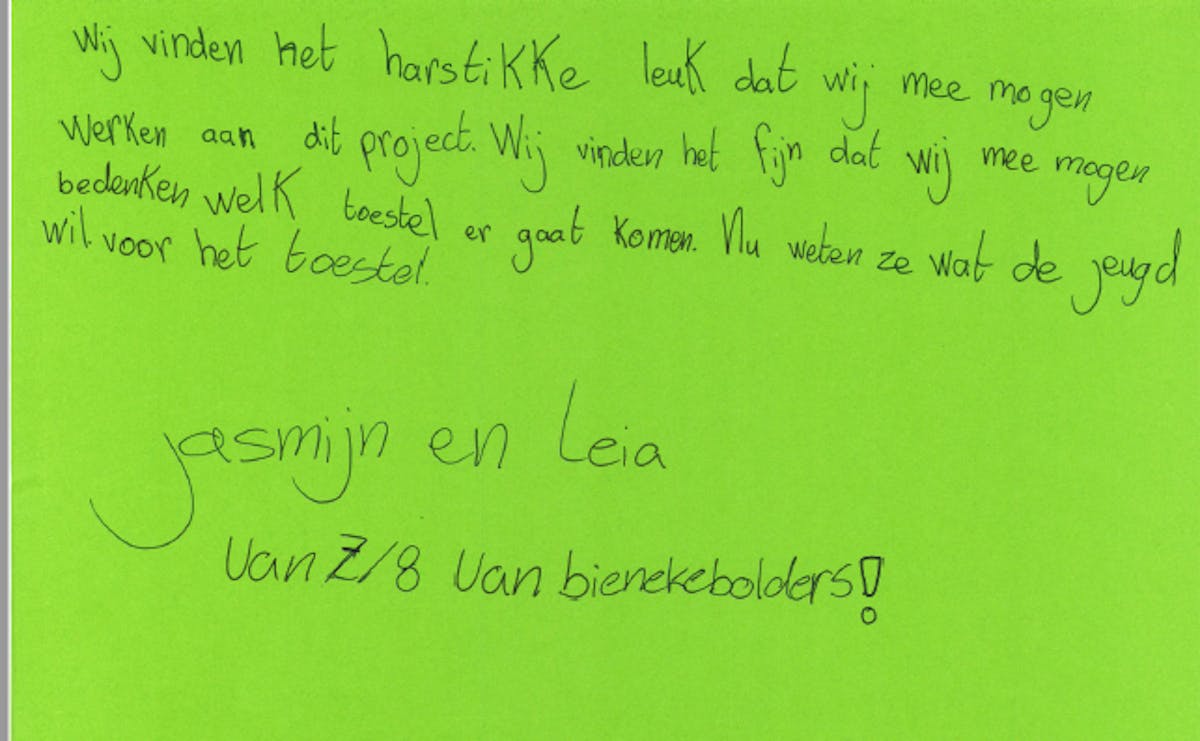 Wij vinden het harstikke leuk dat wij mee mogen
werken aan dit project. Wij vinden het fijn dat wij mee mogen
bedenken welk toestel er gaat komen. Nu weten ze wat de jeugd
wil voor het toestel.
Jasmijn en Leia
Van 7/8 Van bienekebolders!